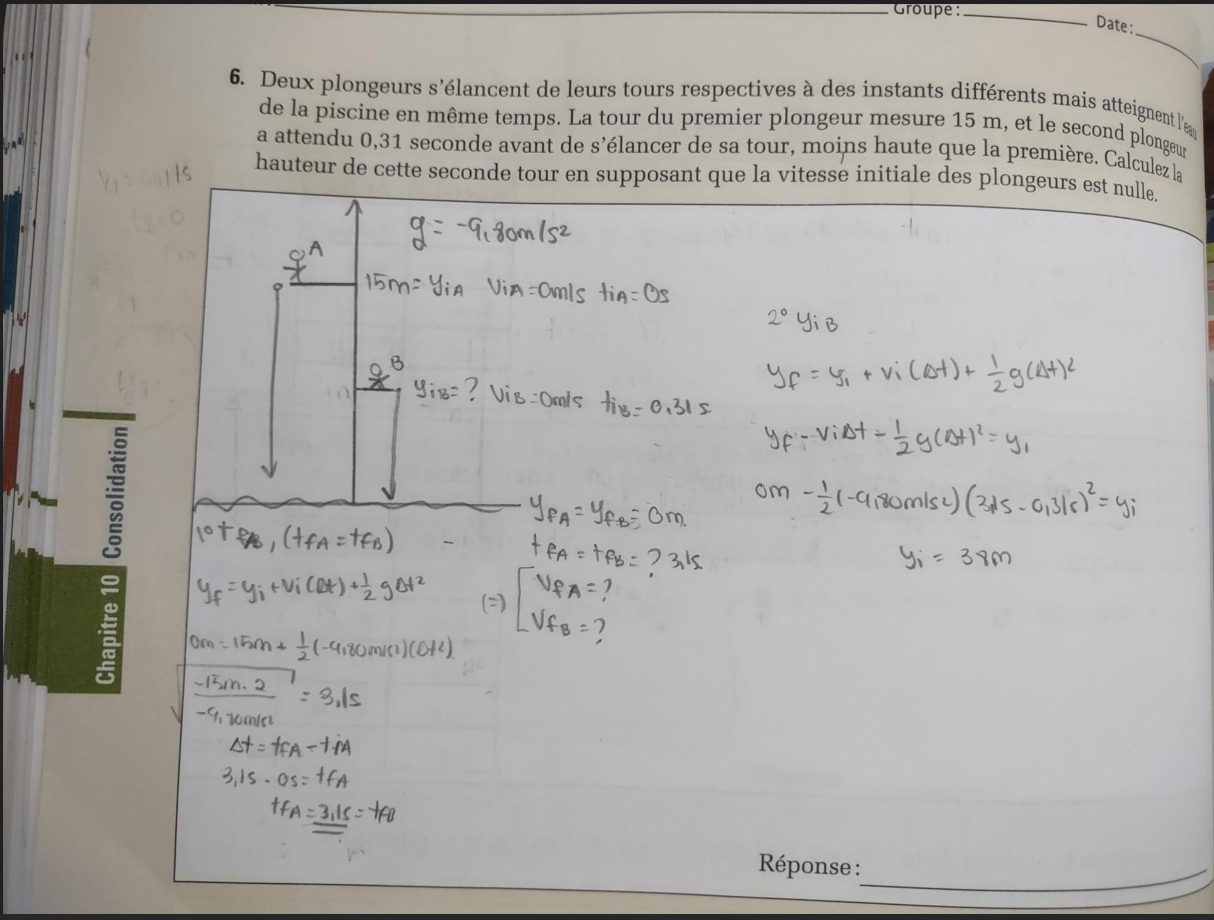 Groupe:
Date:
6. Deux plongeurs s'élancent de leurs tours respectives à des instants différents mais atteignent l'eau
de la piscine en même temps. La tour du premier plongeur mesure 15 m, et le second plongeur
a attendu 0,31 seconde avant de s'élancer de sa tour, moins haute que la première. Calculez la
hauteur de cette seconde tour en supposant que la vitesse initiale des plongeurs est nulle.
g = -9,80m/s²
A
15m = yiA ViA = 0m/s tiA = 0s
B
yiB = ? ViB = 0m/s tiB = 0,31s
yfA = yfB = 0m
tfA = tfB = ? 3,1s
(=) VfA = ?
VfB = ?
1° tfB, (tfA = tfB)
yf = yi + Vi(Δt) + 1/2 gΔt²
0m = 15m + 1/2 (-9,80m/s²)(Δt²)
√(-15m·2 / -9,80m/s²) = 3,1s
Δt = tfA - tiA
3,1s - 0s = tfA
tfA = 3,1s = tfB
2° yiB
yf = yi + Vi(Δt) + 1/2 g(Δt)²
yf - ViΔt - 1/2 g(Δt)² = yi
0m - 1/2 (-9,80m/s²)(3,1s - 0,31s)² = yi
yi = 38m
Réponse:
Chapitre 10 Consolidation